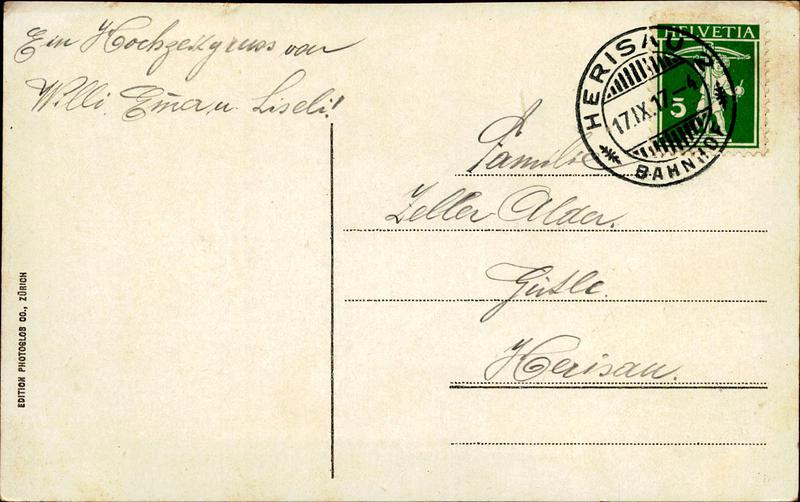 Ein Hochzeitsgruss von
Willi, Emma u. Liseli!
HELVETIA
5
HERISAU 2
17.IX.17-4
BAHNHOF
Familie
Zeller Alder.
Gütle.
Herisau.
EDITION PHOTOGLOB CO., ZÜRICH